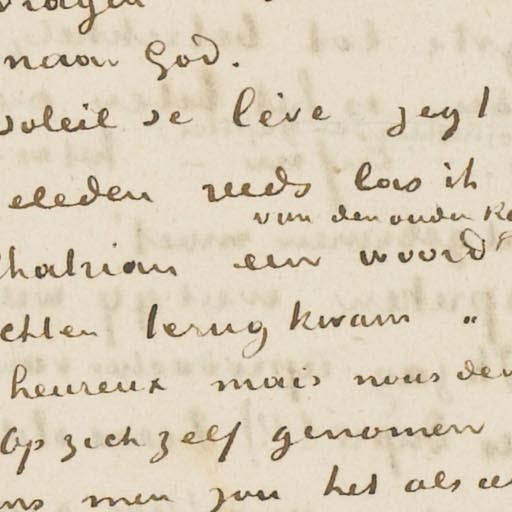 vragen
naar God.
soleil se lève zegt
eleden reeds las ik
van den ouden
Chatrian een woord
chten terug kwam "
heureux mais nous dev
Op zich zelf genomen
men zou het als